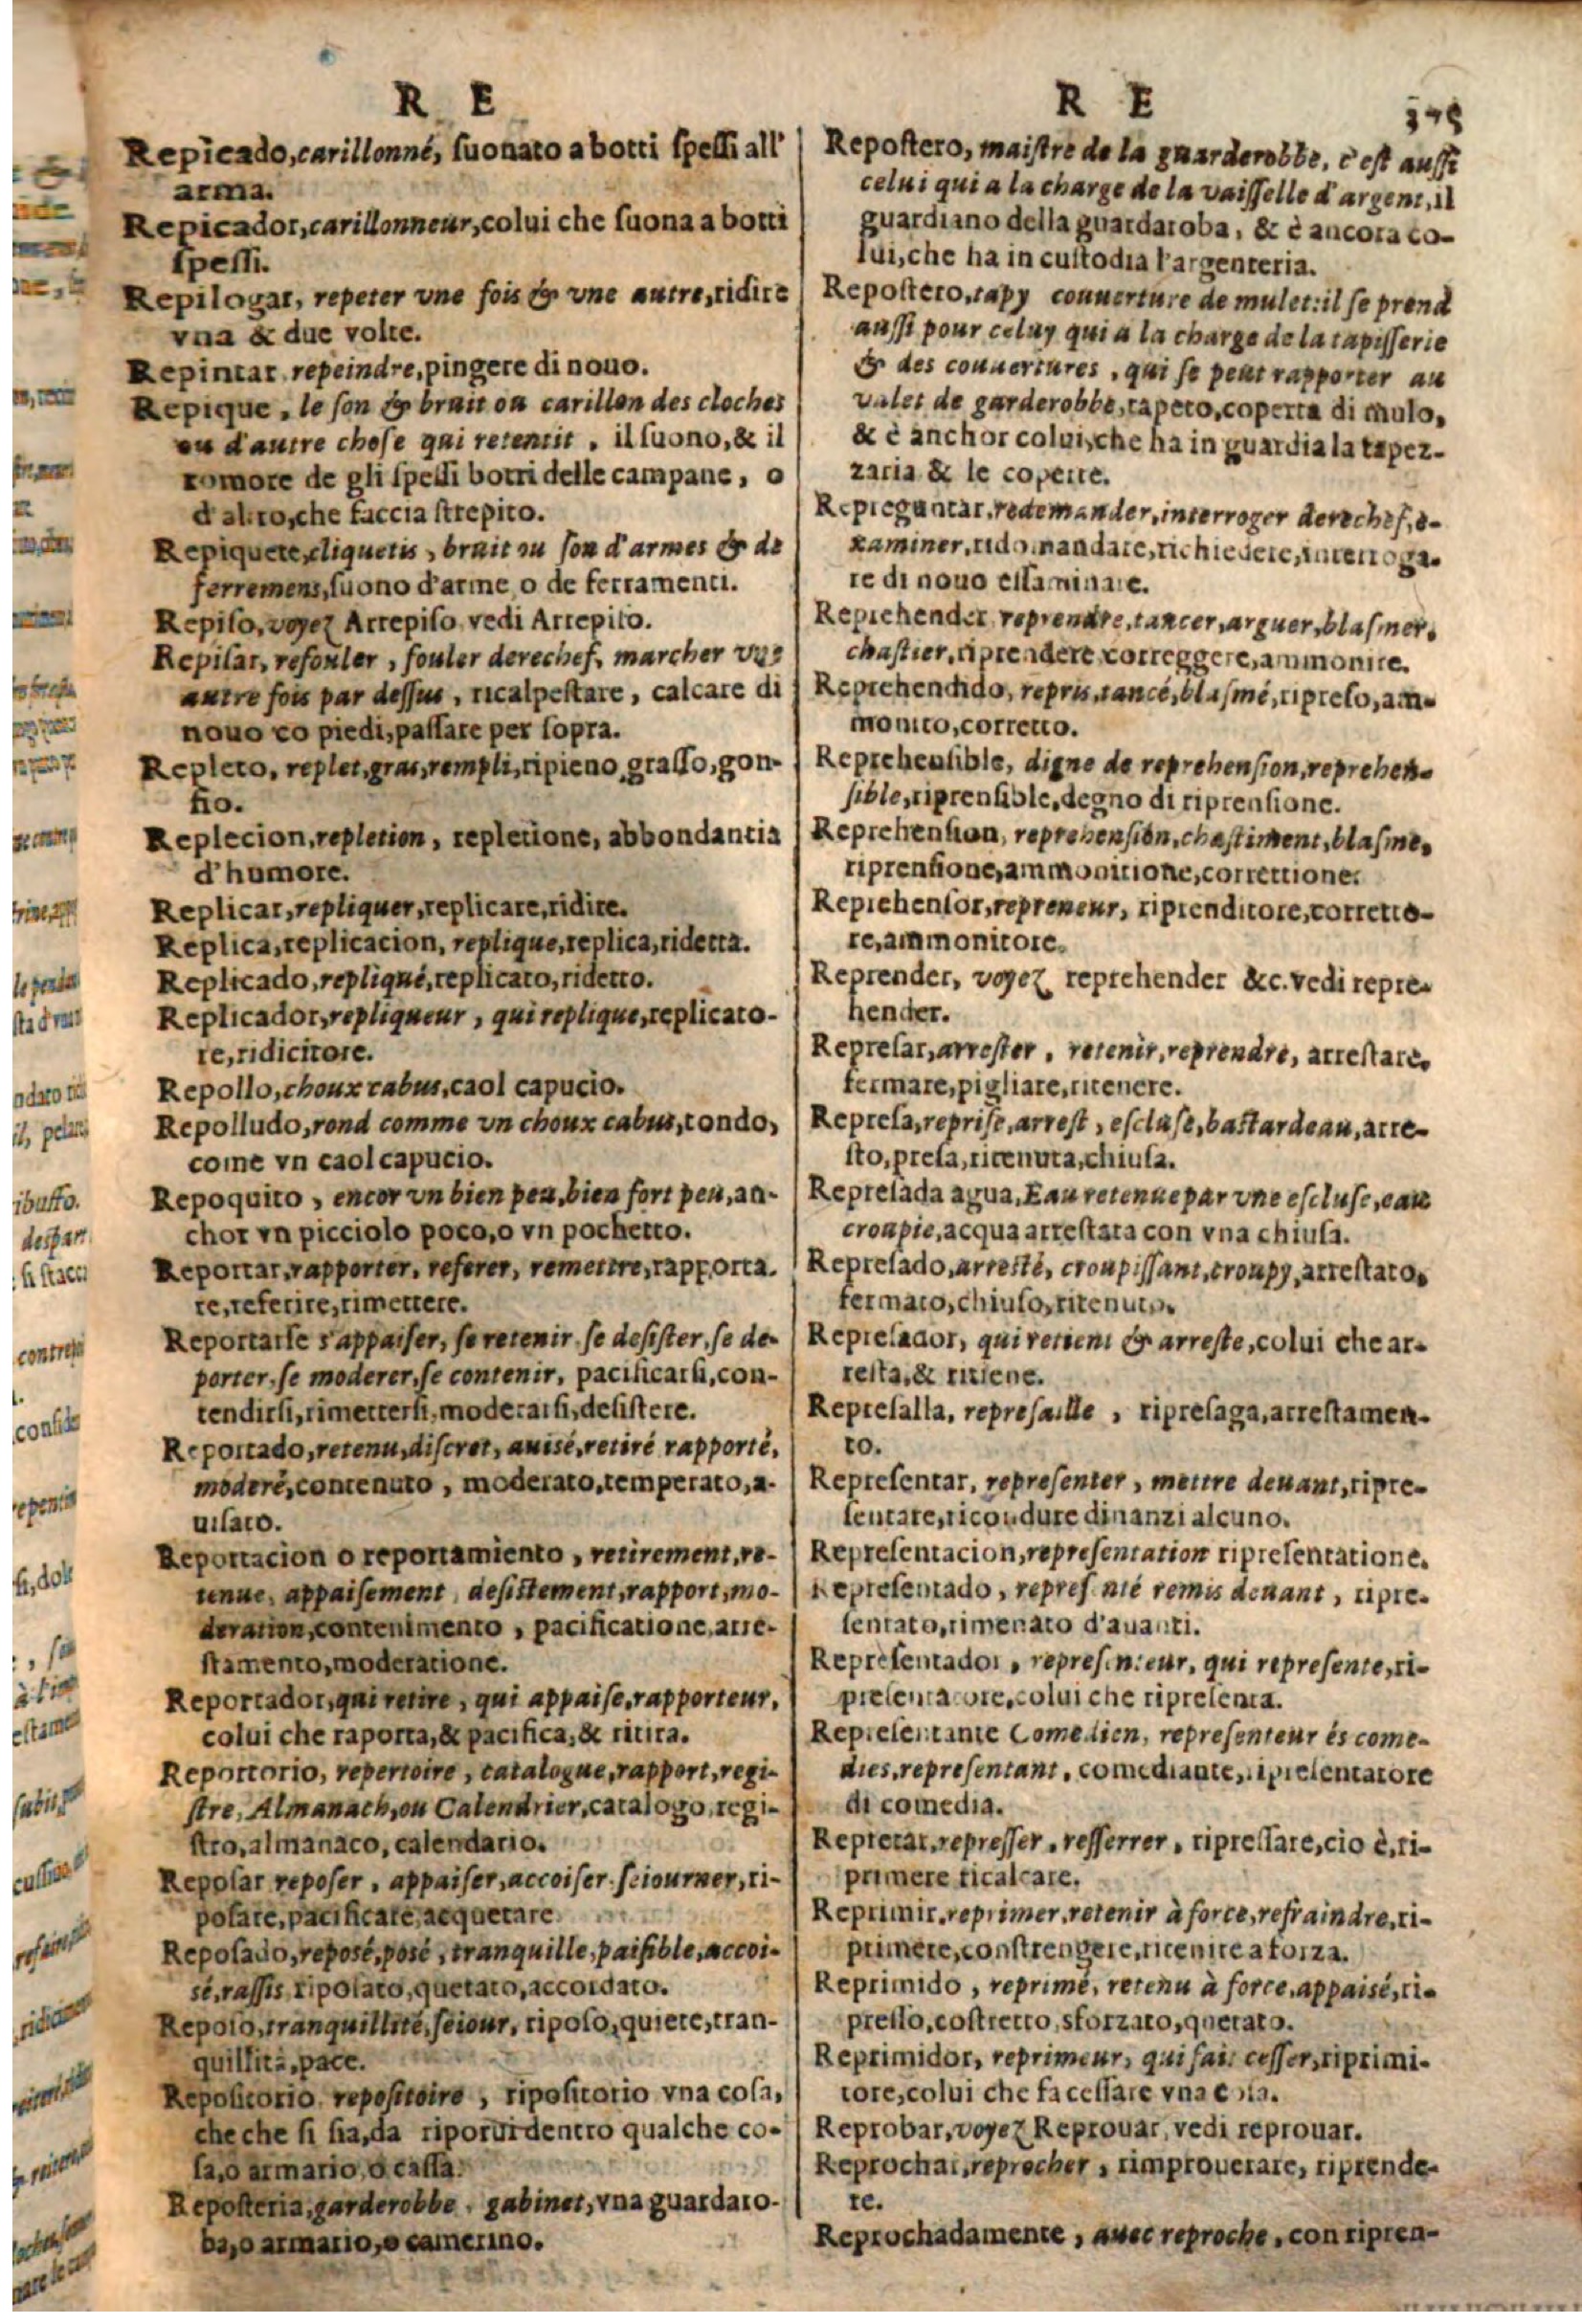 R E
Repicado, carillonné, ſuonato a botti ſpeſſi all'
arma.
Repicador, carillonneur, colui che ſuona a botti
ſpeſſi.
Repilogar, repeter vne fois & vne autre, ridire
vna & due volte.
Repintar repeindre, pingere di nouo.
Repique, le ſon & bruit ou carillon des cloches
ou d'autre choſe qui retentit, il ſuono, & il
romore de gli ſpeſſi botti delle campane, o
d'altro, che faccia ſtrepito.
Repiquete, cliquetis, bruit ou ſon d'armes & de
ferremens, ſuono d'arme o de ferramenti.
Repiſo, voyez Arrepiſo vedi Arrepiſo.
Repiſar, refouler, fouler derechef, marcher vne
autre fois par deſſus, ricalpeſtare, calcare di
nouo co piedi, paſſare per ſopra.
Repleto, replet, gras, rempli, ripieno, graſſo, gon-
fio.
Replecion, repletion, repletione, abbondantia
d'humore.
Replicar, repliquer, replicare, ridire.
Replica, replicacion, replique, replica, ridetta.
Replicado, repliqué, replicato, ridetto.
Replicador, repliqueur, qui replique, replicato-
re, ridicitore.
Repollo, choux cabus, caol capucio.
Repolludo, rond comme vn choux cabus, tondo,
come vn caol capucio.
Repoquito, encor vn bien peu, bien fort peu, an-
chor vn picciolo poco, o vn pochetto.
Reportar, rapporter, referer, remettre, rapporta-
re, referire, rimettere.
Reportarſe s'appaiſer, ſe retenir ſe deſiſter, ſe de-
porter, ſe moderer, ſe contenir, pacificarſi, con-
tendirſi, rimetterſi, moderarſi, deſiſtere.
Reportado, retenu, diſcret, auisé, retiré rapporté,
moderé, contenuto, moderato, temperato, a-
uiſato.
Reportacion o reportamiento, retirement, re-
tenue, appaiſement, deſiſtement, rapport, mo-
deration, contenimento, pacificatione, arre-
ſtamento, moderatione.
Reportador, qui retire, qui appaiſe, rapporteur,
colui che raporta, & pacifica, & ritira.
Reportorio, repertoire, catalogue, rapport, regi-
ſtre, Almanach, ou Calendrier, catalogo, regi-
ſtro, almanaco, calendario.
Repoſar repoſer, appaiſer, accoiſer ſeiourner, ri-
poſare, pacificare, acquetare
Repoſado, reposé, posé, tranquille, paiſible, accoi-
sé, raſſis ripoſato, quetato, accordato.
Repoſo, tranquillité, ſeiour, ripoſo, quiete, tran-
quillità, pace.
Repoſitorio repoſitoire, ripoſitorio vna coſa,
che che ſi ſia, da riporui dentro qualche co-
ſa, o armario, o caſſa.
Repoſteria, garderobbe, gabinet, vna guardaro-
ba, o armario, o camerino.
R E 375
Repoſtero, maiſtre de la guarderobbe, c'eſt auſſi
celui qui a la charge de la vaiſſelle d'argent, il
guardiano della guardaroba, & è ancora co-
lui, che ha in cuſtodia l'argenteria.
Repoſtero, tapy couuerture de mulet: il ſe prend
auſſi pour celuy qui a la charge de la tapiſſerie
& des couuertures, qui ſe peut rapporter au
valet de garderobbe, tapeto, coperta di mulo,
& è anchor colui, che ha in guardia la tapez-
zaria & le coperte.
Repreguntar, redemander, interroger derechef, e-
xaminer, ridomandare, richiedere, interroga-
re di nouo eſſaminare.
Reprehender reprendre, tancer, arguer, blaſmer,
chaſtier, riprendere correggere, ammonire.
Reprehendido, repris, tancé, blaſmé, ripreſo, am-
monito, corretto.
Reprehenſible, digne de reprehenſion, reprehen-
ſible, riprenſible, degno di riprenſione.
Reprehenſion, reprehenſion, chaſtiment, blaſme,
riprenſione, ammonitione, correttione.
Reprehenſor, repreneur, riprenditore, corretto-
re, ammonitore.
Reprender, voyez reprehender &c. vedi repre-
hender.
Repreſar, arreſter, retenir, reprendre, arreſtare,
fermare, pigliare, ritenere.
Repreſa, repriſe, arreſt, eſcluſe, baſtardeau, arre-
ſto, preſa, ritenuta, chiuſa.
Repreſada agua, Eau retenue par vne eſcluſe, eau
croupie, acqua arreſtata con vna chiuſa.
Repreſado, arreſté, croupiſſant, croupy, arreſtato,
fermato, chiuſo, ritenuto.
Repreſador, qui retient & arreſte, colui che ar-
reſta, & ritiene.
Repreſalla, repreſaille, ripreſaga, arreſtamen-
to.
Repreſentar, repreſenter, mettre deuant, ripre-
ſentare, ricondure dinanzi alcuno.
Repreſentacion, repreſentation ripreſentatione.
Repreſentado, repreſenté remis deuant, ripre-
ſentato, rimenato d'auanti.
Repreſentador, repreſenteur, qui repreſente, ri-
preſentatore, colui che ripreſenta.
Repreſentante Comedien, repreſenteur és come-
dies, repreſentant, comediante, ripreſentatore
di comedia.
Repretar, repreſſer, reſſerrer, ripreſſare, cio è, ri-
primere ricalcare.
Reprimir, reprimer, retenir à force, refraindre, ri-
primere, conſtrengere, ritenire a forza.
Reprimido, reprimé, retenu à force, appaisé, ri-
preſſo, coſtretto, sforzato, quetato.
Reprimidor, reprimeur, qui fait ceſſer, riprimi-
tore, colui che fa ceſſare vna coſa.
Reprobar, voyez Reprouar, vedi reprouar.
Reprochar, reprocher, rimprouerare, riprende-
re.
Reprochadamente, auec reproche, con ripren-